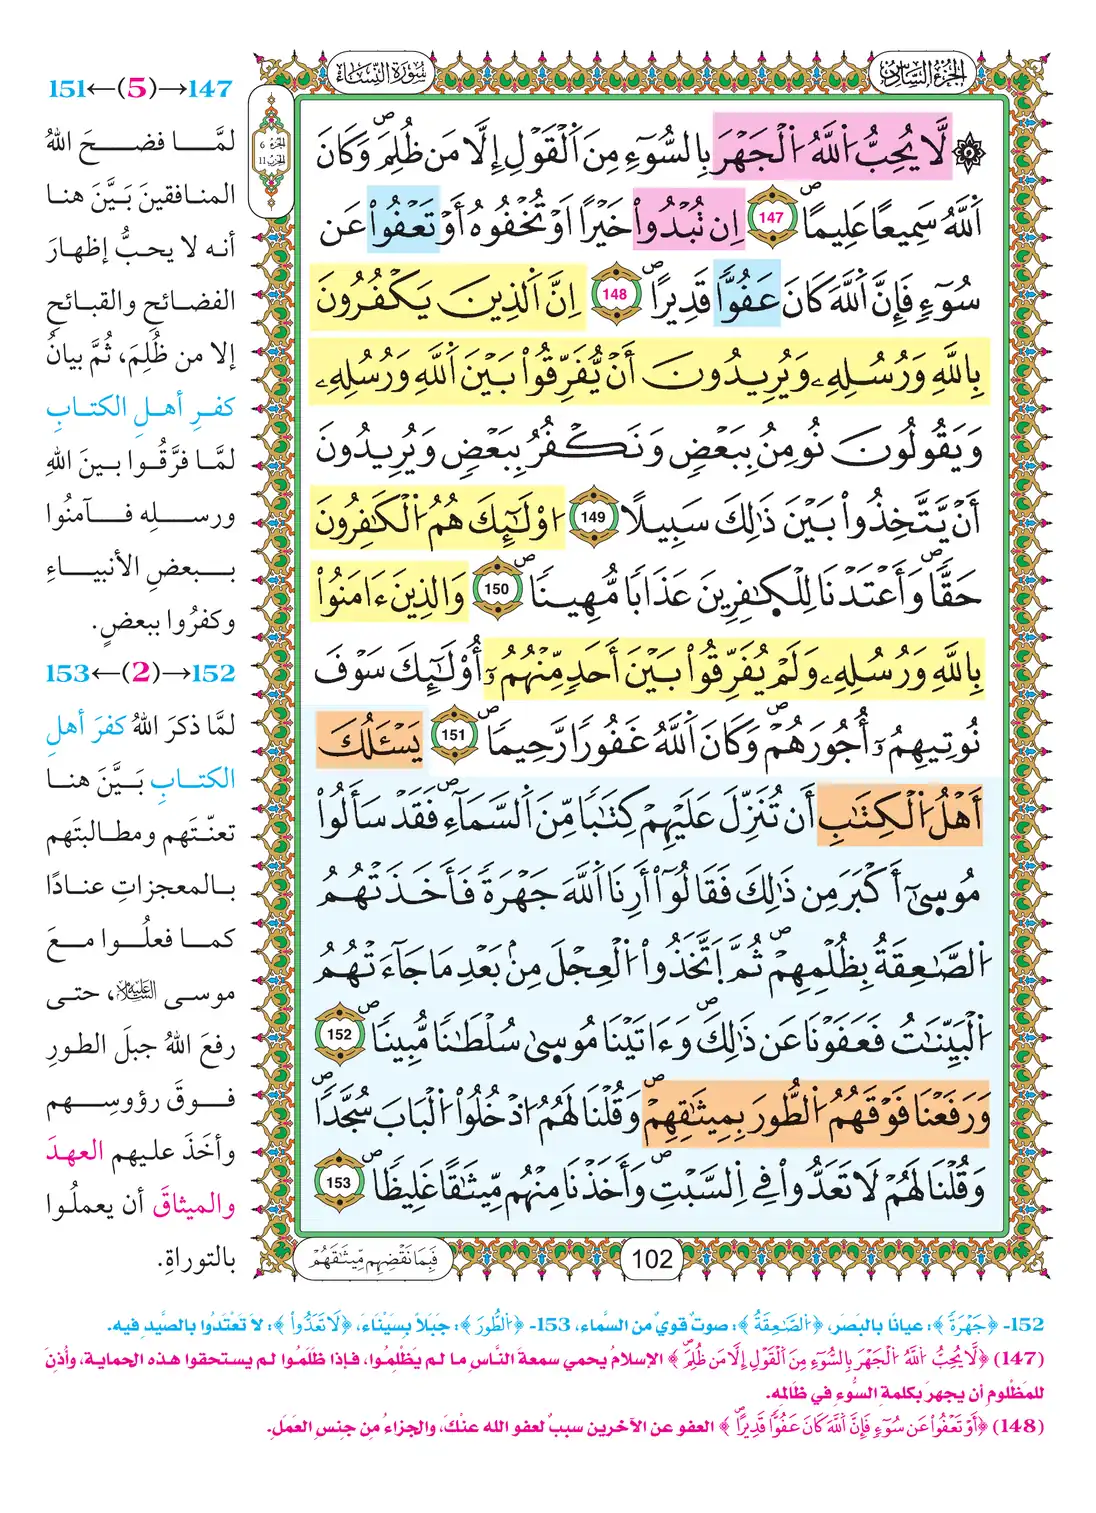 الجزء السادس
سورة النساء
الجزء 6
الحزب 11
۞ لَّا يُحِبُّ اُ۬للَّهُ اُ۬لْجَهْرَ بِالسُّوٓءِ مِنَ اَ۬لْقَوْلِ إِلَّا مَن ظُلِمَۖ وَكَانَ
اَ۬للَّهُ سَمِيعاً عَلِيماًۖ 147 اِن تُبْدُواْ خَيْراً اَوْ تُخْفُوهُ أَوْ تَعْفُواْ عَن
سُوٓءٖ فَإِنَّ اَ۬للَّهَ كَانَ عَفُوّاٗ قَدِيراًۖ 148 اِنَّ اَ۬لذِينَ يَكْفُرُونَ
بِاللَّهِ وَرُسُلِهِۦ وَيُرِيدُونَ أَنْ يُّفَرِّقُواْ بَيْنَ اَ۬للَّهِ وَرُسُلِهِۦ
وَيَقُولُونَ نُومِنُ بِبَعْضٖ وَنَكْفُرُ بِبَعْضٖ وَيُرِيدُونَ
أَنْ يَّتَّخِذُواْ بَيْنَ ذَٰلِكَ سَبِيلاً 149 اُوْلَٰٓئِكَ هُمُ اُ۬لْكَٰفِرُونَ
حَقّاٗۖ وَأَعْتَدْنَا لِلْكَٰفِرِينَ عَذَاباٗ مُّهِيناٗۖ 150 وَالذِينَ ءَامَنُواْ
بِاللَّهِ وَرُسُلِهِۦ وَلَمْ يُفَرِّقُواْ بَيْنَ أَحَدٖ مِّنْهُمُۥٓ أُوْلَٰٓئِكَ سَوْفَ
نُوتِيهِمُۥٓ أُجُورَهُمْۖ وَكَانَ اَ۬للَّهُ غَفُوراٗ رَّحِيماٗۖ 151 يَسْـَٔلُكَ
أَهْلُ اُ۬لْكِتَٰبِ أَن تُنَزِّلَ عَلَيْهِمْ كِتَٰباٗ مِّنَ اَ۬لسَّمَآءِۖ فَقَدْ سَأَلُواْ
مُوسَىٰٓ أَكْبَرَ مِن ذَٰلِكَ فَقَالُوٓاْ أَرِنَا اَ۬للَّهَ جَهْرَةٗ فَأَخَذَتْهُمُ
اُ۬لصَّٰعِقَةُ بِظُلْمِهِمْۖ ثُمَّ اَ۪تَّخَذُواْ اُ۬لْعِجْلَ مِنۢ بَعْدِ مَا جَآءَتْهُمُ
اُ۬لْبَيِّنَٰتُ فَعَفَوْنَا عَن ذَٰلِكَۖ وَءَاتَيْنَا مُوسَىٰ سُلْطَٰناٗ مُّبِيناٗۖ 152
وَرَفَعْنَا فَوْقَهُمُ اُ۬لطُّورَ بِمِيثَٰقِهِمْۖ وَقُلْنَا لَهُمُ اُ۟دْخُلُواْ اُ۬لْبَابَ سُجَّداٗۖ
وَقُلْنَا لَهُمْ لَا تَعَدُّواْ فِے اِ۬لسَّبْتِۖ وَأَخَذْنَا مِنْهُم مِّيثَٰقاً غَلِيظاٗۖ 153
102
فَبِمَا نَقْضِهِم مِّيثَٰقَهُمْ
147→(5)←151
لمَّا فضحَ اللهُ
المنافقينَ بيَّنَ هنا
أنه لا يحبُّ إظهارَ
الفضائحِ والقبائحِ
إلا من ظُلِمَ، ثُمَّ بيانُ
كفرِ أهلِ الكتابِ
لمَّا فرَّقُوا بينَ اللهِ
ورسلِه فآمنُوا
ببعضِ الأنبياءِ
وكفرُوا ببعضٍ.
152→(2)←153
لمَّا ذكرَ اللهُ كفرَ أهلِ
الكتابِ بيَّنَ هنا
تعنّتَهم ومطالبتَهم
بالمعجزاتِ عنادًا
كما فعلُوا معَ
موسى عليه السلام، حتى
رفعَ اللهُ جبلَ الطورِ
فوقَ رؤوسِهم
وأخذَ عليهم العهدَ
والميثاقَ أن يعملُوا
بالتوراةِ.
152- ﴿جَهْرَةٗ﴾: عيانًا بالبَصَر، ﴿اُ۬لصَّٰعِقَةُ﴾: صوتٌ قويٌ من السَّماء، 153- ﴿اُ۬لطُّورَ﴾: جبلًا بِسَيْنَاءَ، ﴿لَا تَعَدُّواْ﴾: لا تَعْتَدُوا بالصَّيدِ فيه.
(147) ﴿لَّا يُحِبُّ اُ۬للَّهُ اُ۬لْجَهْرَ بِالسُّوٓءِ مِنَ اَ۬لْقَوْلِ إِلَّا مَن ظُلِمَۖ﴾ الإسلامُ يحمي سمعةَ النَّاسِ ما لم يَظْلِمُوا، فإذا ظَلَمُوا لم يستحقوا هذه الحماية، وأُذِنَ
للمَظْلومِ أن يجهرَ بكلمةِ السُّوءِ في ظَالمِه.
(148) ﴿أَوْ تَعْفُواْ عَن سُوٓءٖ فَإِنَّ اَ۬للَّهَ كَانَ عَفُوّاٗ قَدِيراًۖ﴾ العفو عن الآخرين سببٌ لعفو الله عنْكَ، والجزاءُ مِن جنِسِ العَمَلِ.